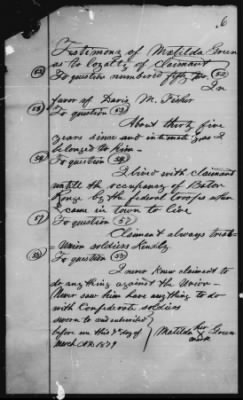 6
Testimony of Matilda Green
as to loyalty of Claimant
(52) To question numbered fifty two (52)
In
favor of Davis M. Fisher
(53) To question (53)
About thirty five
years since and intimately as I
belonged to him
To question
I lived with claimant
untill the occupancy of Baton
Rouge by the federal troops when
I came in town to live
(57) To question (57)
Claimant always treated
Union soldiers kindly
To question
I never knew claimant to
do anything against the Union
Never saw him have anything to do
with Confederate soldiers
Sworn to and subscribed
before me this day of
March AD 1879
Matilda her Green
mark